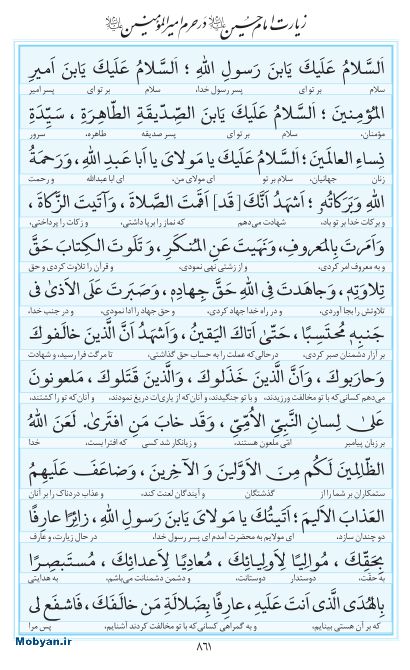 زیارت امام حسین علیه السلام در حرم امیرالمؤمنین علیه السلام
اَلسَّلامُ عَلَيكَ يَابنَ رَسولِ اللهِ ؛ اَلسَّلامُ عَلَيكَ يَابنَ اَميرِ
سلام بر تو ای پسر رسول خدا، سلام بر تو ای پسر امیر
المُؤمِنينَ ؛ اَلسَّلامُ عَلَيكَ يَابنَ الصِّدّيقَةِ الطّاهِرَةِ ، سَيِّدَةِ
مؤمنان، سلام بر تو ای پسر صدیقه طاهره، سرور
نِساءِ العالَمينَ ؛ اَلسَّلامُ عَلَيكَ يا مَولايَ يا اَبا عَبدِ اللهِ ، وَرَحمَةُ
زنان جهانیان، سلام بر تو ای مولای من، ای ابا عبدالله و رحمت
اللهِ وَبَرَكاتُهُ ؛ اَشهَدُ اَنَّكَ [ قَد ] اَقَمتَ الصَّلاةَ ، وَآتَيتَ الزَّكاةَ ،
و برکات خدا بر تو باد، شهادت می‌دهم که نماز را برپا داشتی، و زکات را پرداختی،
وَاَمَرتَ بِالمَعروفِ، وَنَهَيتَ عَنِ المُنكَرِ ، وَ تَلَوتَ الكِتابَ حَقَّ
و به معروف امر کردی، و از زشتی نهی نمودی، و قرآن را تلاوت کردی و حق
تِلاوَتِهِ ، وَجاهَدتَ فِي اللهِ حَقَّ جِهادِهِ، وَصَبَرتَ عَلَى الاَذىٰ في
تلاوتش را بجا آوردی، و در راه خدا جهاد کردی، و حق جهاد را ادا نمودی، و در جنب خدا،
جَنبِهِ مُحتَسِبًا ، حَتّىٰ اَتاكَ اليَقينُ ، وَاَشهَدُ اَنَّ الَّذينَ خالَفوكَ
بر آزار دشمنان صبر کردی، درحالی‌که عملت را به حساب حق گذاشتی، تا مرگت فرا رسید، و شهادت
وَحارَبوكَ ، وَاَنَّ الَّذينَ خَذَلوكَ ، وَالَّذينَ قَتَلوكَ ، مَلعونونَ
می‌دهم کسانی‌که با تو مخالفت ورزیدند، و با تو جنگیدند، و آنان‌که از یاری‌ات دریغ نمودند، و آنان‌که تو را کشتند،
عَلىٰ لِسانِ النَّبِيِّ الاُمِّيِّ ، وَقَد خابَ مَنِ افتَرىٰ، لَعَنَ اللهُ
بر زبان پیامبر امّی ملعون هستند، و زیانکار شد کسی که افترا بست، خدا
الظّالِمينَ لَكُم مِنَ الاَوَّلينَ وَ الآخِرينَ ، وَضاعَفَ عَلَيهِمُ
ستمکاران بر شما را از گذشتگان و آیندگان لعنت کند، و عذاب دردناک را بر آنان
العَذابَ الاَليمَ ؛ اَتَيتُكَ يا مَولايَ يَابنَ رَسولِ اللهِ، زائِرًا عارِفًا
دو چندان سازد، ای مولایم به محضرت آمدم ای پسر رسول خدا، در حال زیارت، و عارف
بِحَقِّكَ ، مُوالِيًا لِاَولِيائِكَ ، مُعادِيًا لِاَعدائِكَ ، مُستَبصِرًا
به حقت، دوستدار دوستانت، و دشمن دشمنانت می‌باشم، به هدایتی
بِالهُدَى الَّذي اَنتَ عَلَيهِ، عارِفًا بِضَلالَةِ مَن خالَفَكَ، فَاشفَع لي
که بر آن هستی بینایم، و به گمراهی کسانی‌که با تو مخالفت کردند آشنایم، پس مرا
۸۶۱
Mobyan.ir